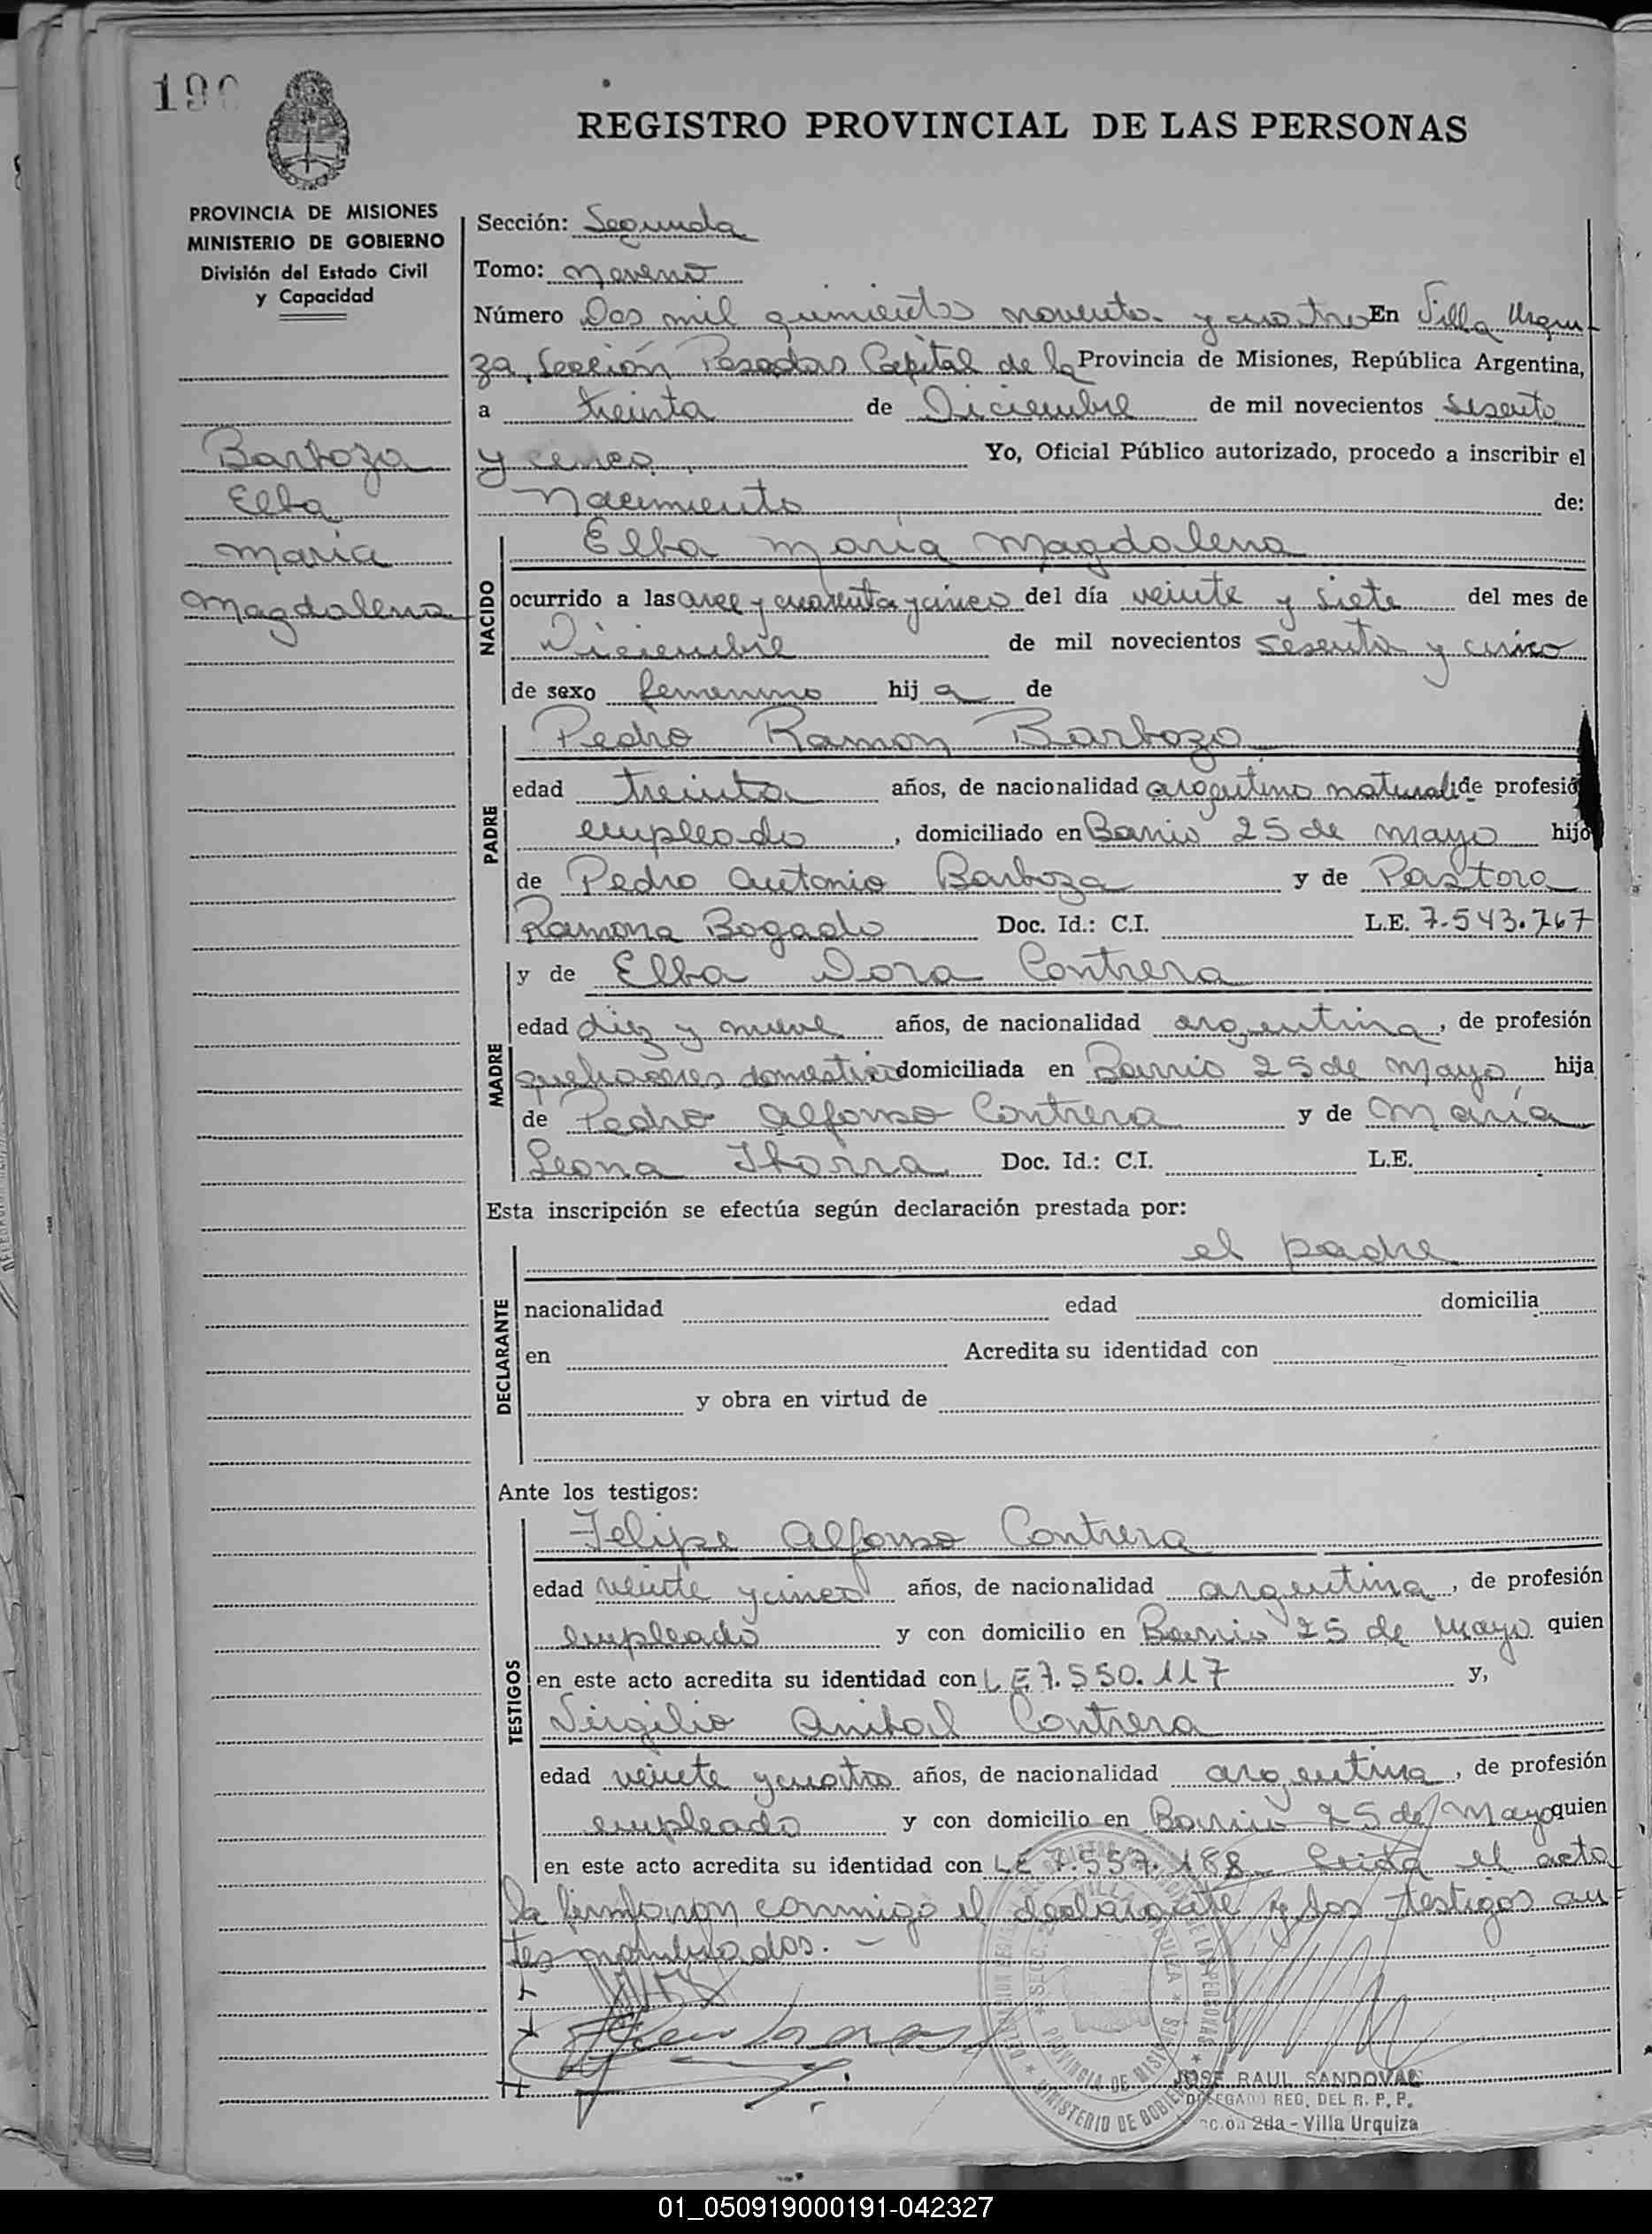 190
REGISTRO PROVINCIAL DE LAS PERSONAS
PROVINCIA DE MISIONES
MINISTERIO DE GOBIERNO
División del Estado Civil
y Capacidad
Barboza
Elba
Maria
Magdalena
Sección: Segunda
Tomo: Noveno
Número Dos mil quinientos noventa y cuatro En Villa Urqui-
za, Sección Posadas Capital de la Provincia de Misiones, República Argentina,
a treinta de Diciembre de mil novecientos sesenta
y cinco Yo, Oficial Público autorizado, procedo a inscribir el
Nacimiento de:
NACIDO
Elba María Magdalena
ocurrido a las once y cuarenta y cinco del día veinte y siete del mes de
Diciembre de mil novecientos sesenta y cinco
de sexo femenino hij a de
PADRE
Pedro Ramon Barboza
edad treinta años, de nacionalidad argentino de profesió
empleado, domiciliado en Barrio 25 de Mayo hijo
de Pedro Antonio Barboza y de Pastora
Ramona Bogado Doc. Id.: C.I. L.E. 7.543.767
MADRE
y de Elba Dora Contrera
edad diez y nueve años, de nacionalidad argentina, de profesión
quehaceres domestico domiciliada en Barrio 25 de Mayo hija
de Pedro Alfonso Contrera y de María
Leona Ibarra Doc. Id.: C.I. L.E.
Esta inscripción se efectúa según declaración prestada por:
DECLARANTE
el padre
nacionalidad edad domicilia
en Acredita su identidad con
y obra en virtud de
Ante los testigos:
TESTIGOS
Felipe Alfonso Contrera
edad veinte y cinco años, de nacionalidad argentina, de profesión
empleado y con domicilio en Barrio 25 de Mayo quien
en este acto acredita su identidad con LE 7.550.117 y,
Virgilio Anibal Contrera
edad veinte y cuatro años, de nacionalidad argentina, de profesión
empleado y con domicilio en Barrio 25 de Mayo quien
en este acto acredita su identidad con LE 7.557.188 Leida el acta
la firmaron conmigo el declarante y los testigos an-
tes nombrados. -
PROVINCIA DE MISIONES
MINISTERIO DE GOBIERNO
JOSE RAUL SANDOVAL
DELEGADO REG. DEL R. P. P.
2da - Villa Urquiza
01_050919000191-042327